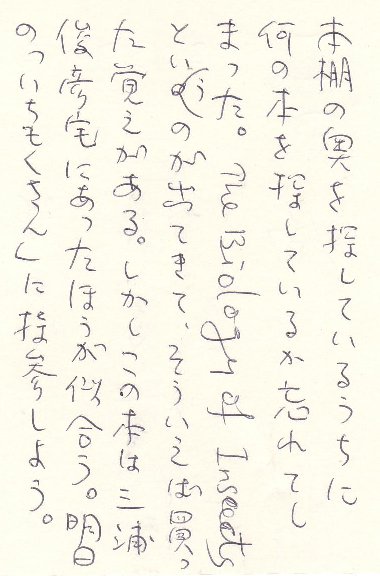 本棚の奥を探しているうちに
何の本を探しているか忘れてし
まった。The Biology of Insects
というのが出てきて、そういえば買っ
た覚えがある。しかしこの本は三浦
俊彦宅にあったほうが似合う。明日
の「いちもくさん」に持参しよう。